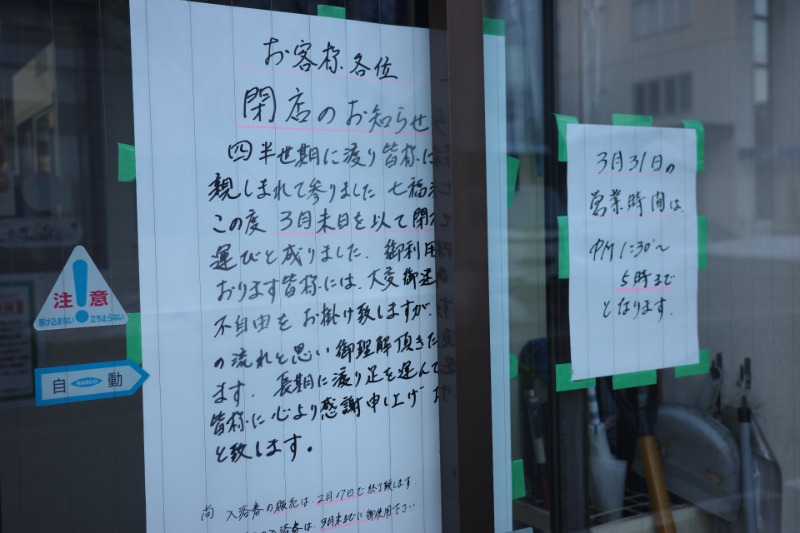 お客様各位
閉店のお知らせ
四半世期に渡り皆様に
親しまれて参りました 七福
この度 3月末日を以て閉
運びと成りました. 御利用
おります皆様には、大変御迷
不自由をお掛け致しますが、
の流れと思い御理解頂きた
ます. 長期に渡り足を運んで
皆様に心より感謝申し上げ
と致します。
尚 入浴券の販売は、2月17日で終了致します.
入浴券は、3月末までに御使用下さい
3月31日の
営業時間は、
PM1:30~
5時まで
となります.
注意
駆け込まない 立ちどまらない
自 NABCO 動